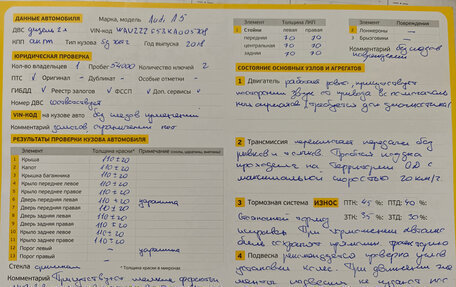 ДАННЫЕ АВТОМОБИЛЯ
Марка, модель Audi A5
ДВС дизель 2л VIN-код
КПП акпп Тип кузова 5дв Год выпуска 2018
ЮРИДИЧЕСКАЯ ПРОВЕРКА
Кол-во владельцев 1 Пробег 54000 Количество ключей 2
ПТС ✓ Оригинал - Дубликат - Особые отметки -
ГИБДД ✓ Реестр залогов ✓ ФССП ✓ Доп. сервисы ✓
Номер ДВС соответствует
VIN-КОД на кузове авто без следов изменений
Комментарий залогов ограничений нет
РЕЗУЛЬТАТЫ ПРОВЕРКИ КУЗОВА АВТОМОБИЛЯ
Элемент Толщина краски* Примечание
1 Крыша 110±20
2 Капот 110±20
3 Крышка багажника 110±20
4 Крыло переднее левое 110±20
5 Крыло переднее правое 110±20
6 Дверь передняя левая 110±20 царапина
7 Дверь передняя правая 110±20
8 Дверь задняя левая 110±20
9 Дверь задняя правая 110±20
10 Крыло заднее левое 110±20
11 Крыло заднее правое 110±20
12 Порог левый царапина
13 Порог правый
Стекла оригинал * Толщина краски в микронах
Комментарий Присутствуют мелкие
Элемент Толщина ЛКП
1 Стойки левые правые
передние 110 110
центральная 110 110
задние 110 110
Элемент
2 Лонжероны -
3 Брызговики -
Комментарий без следов
повреждений
СОСТОЯНИЕ ОСНОВНЫХ УЗЛОВ И АГРЕГАТОВ
1 Двигатель работает ровно, присутствует
посторонний звук от привода вспомогатель-
ных агрегатов (требуется доп диагностика)
2 Трансмиссия переключает передачи без
рывков и толчков. Пробная поездка
проходила на территории
максимальной скоростью 20 км/ч.
3 Тормозная система ИЗНОС ПТК: 45 %. ПТД: 40 %.
ЗТК: 35 %. ЗТД: 30 %.
4 Подвеска рекомендуется проверка углов
установки колес. При движении